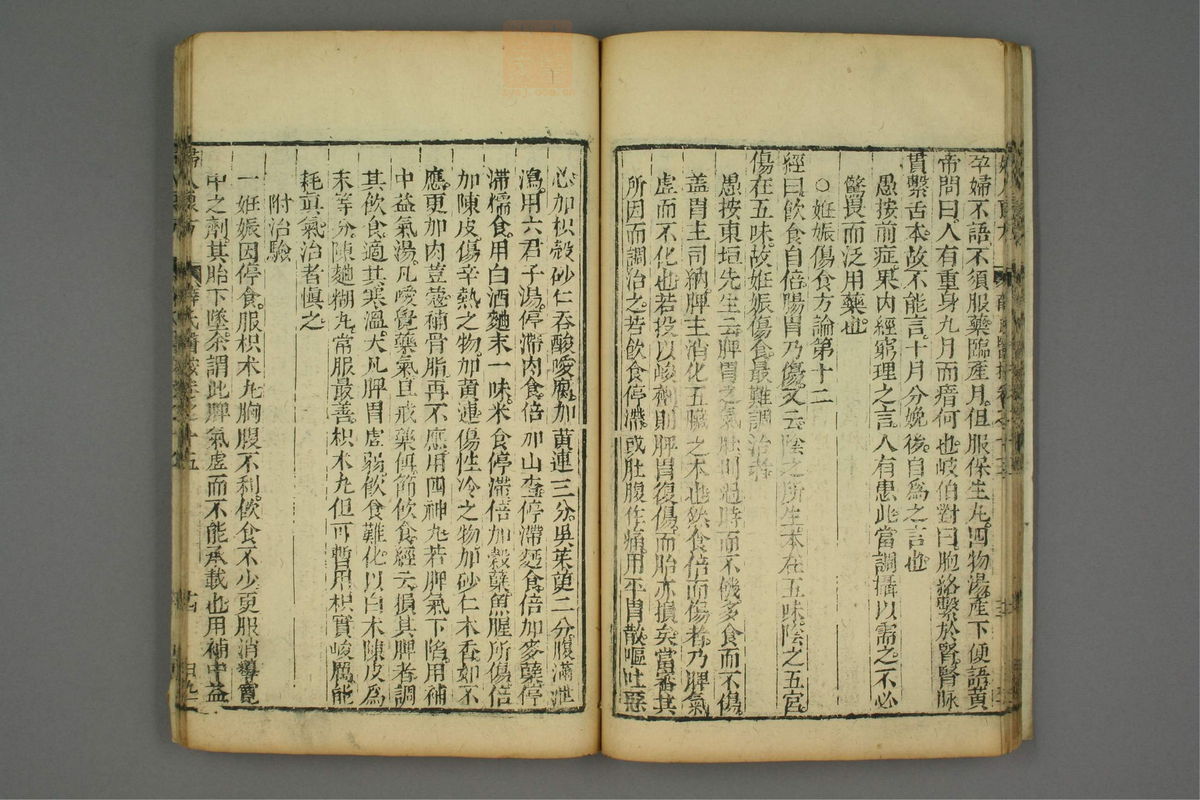 孕婦不語不須服藥臨產月但服保生丸四物湯產下便語黃
帝問曰人有重身九月而瘖何也岐伯對曰胞絡繫於腎腎脉
貫繫舌本故不能言十月分娩後自爲之言也
愚按前症果內經窮理之言人有患此當調攝以需之不必
驚畏而泛用藥也
○姙娠傷食方論第十二
經曰飲食自倍腸胃乃傷又云陰之所生本在五味陰之五宮
傷在五味故姙娠傷食最難調治者
愚按東垣先生云脾胃之氣壯則過時而不饑多食而不傷
蓋胃主司納脾主消化五臟之本也然食倍而傷者乃脾氣
虛而不化也若投以峻劑則脾胃復傷而胎亦損矣當審其
所因而調治之若飲食停滯或肚腹作痛用平胃散嘔吐惡
心加枳殻砂仁吞酸噯腐加黃連三分吳茱萸二分腹滿泄
瀉用六君子湯停滯肉食倍加山查停滯麵食倍加麥蘖停
滯糯食用白酒麯末一味米食停滯倍加穀蘖魚腥所傷倍
加陳皮傷辛熱之物加黃連傷性冷之物加砂仁木香如不
應更加肉荳蔻補骨脂再不應用四神丸若脾氣下陷用補
中益氣湯凡噯覺藥氣且戒藥餌節飲食經云損其脾者調
其飲食適其寒溫大凡脾胃虛弱飲食難化以白朮陳皮爲
末等分陳麯糊丸常服最善枳朮丸但可暫用枳實峻厲能
耗眞氣治者愼之
附治驗
一姙娠因停食服枳朮丸胸腹不利飲食不少更服消導寬
中之劑其胎下墜余謂此脾氣虛而不能承載也用補中益